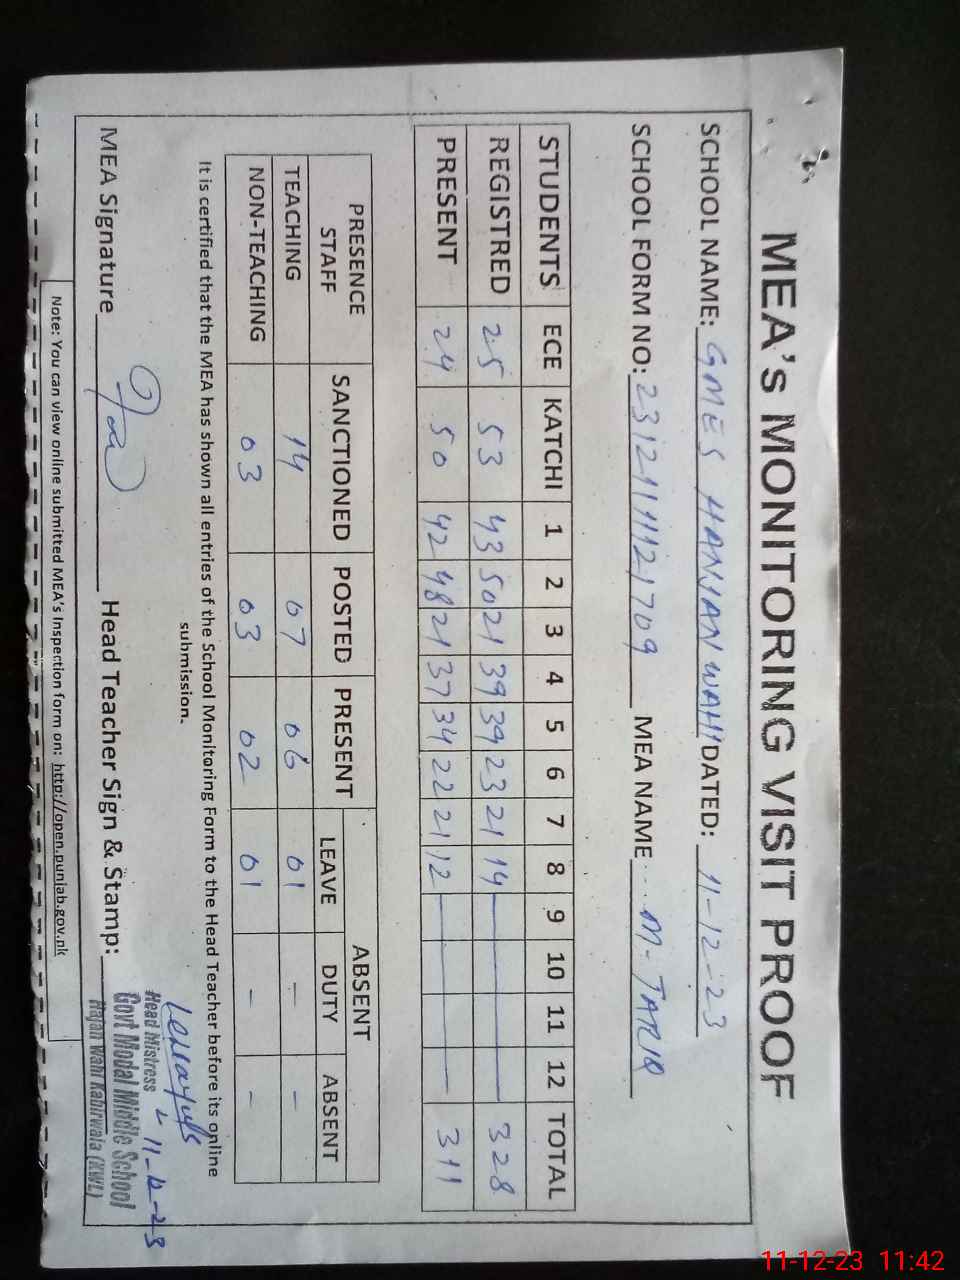 MEA's MONITORING VISIT PROOF
SCHOOL NAME: GMES HANJAN WAHI DATED: 11-12-23
SCHOOL FORM NO: 2312111121709 MEA NAME M-TARIQ
STUDENTS ECE KATCHI 1 2 3 4 5 6 7 8 9 10 11 12 TOTAL
REGISTRED 25 53 43 50 21 39 39 23 21 14 328
PRESENT 24 50 42 48 21 37 34 22 21 12 311
PRESENCE STAFF SANCTIONED POSTED PRESENT ABSENT
LEAVE DUTY ABSENT
TEACHING 14 07 06 01 - -
NON-TEACHING 03 03 02 01 - -
It is certified that the MEA has shown all entries of the School Monitoring Form to the Head Teacher before its online
submission.
MEA Signature Head Teacher Sign & Stamp:
11-12-23
Head Mistress
Govt Modal Middle School
Hajan Wahi Kabirwala (KWL)
Note: You can view online submitted MEA's Inspection form on: http://open.punjab.gov.pk
11-12-23 11:42